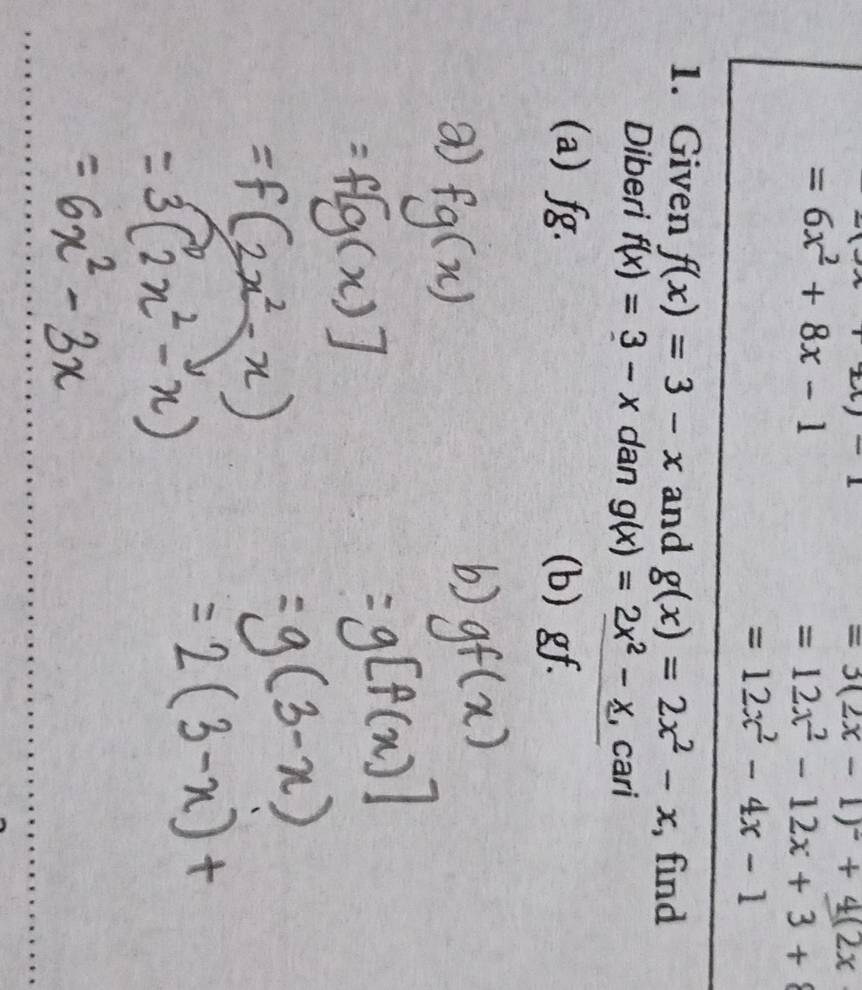 = 6x² + 8x − 1
= 3(2x − 1)² + 4(2x
= 12x² − 12x + 3 +
= 12x² − 4x − 1
1. Given f(x) = 3 − x and g(x) = 2x² − x, find
Diberi f(x) = 3 − x dan g(x) = 2x² − x, cari
(a) fg.
(b) gf.
a) fg(x)
= f[g(x)]
= f(2x² - x)
= 3(2x² - x)
= 6x² - 3x
b) gf(x)
= g[f(x)]
= g(3-x)
= 2(3-x) +